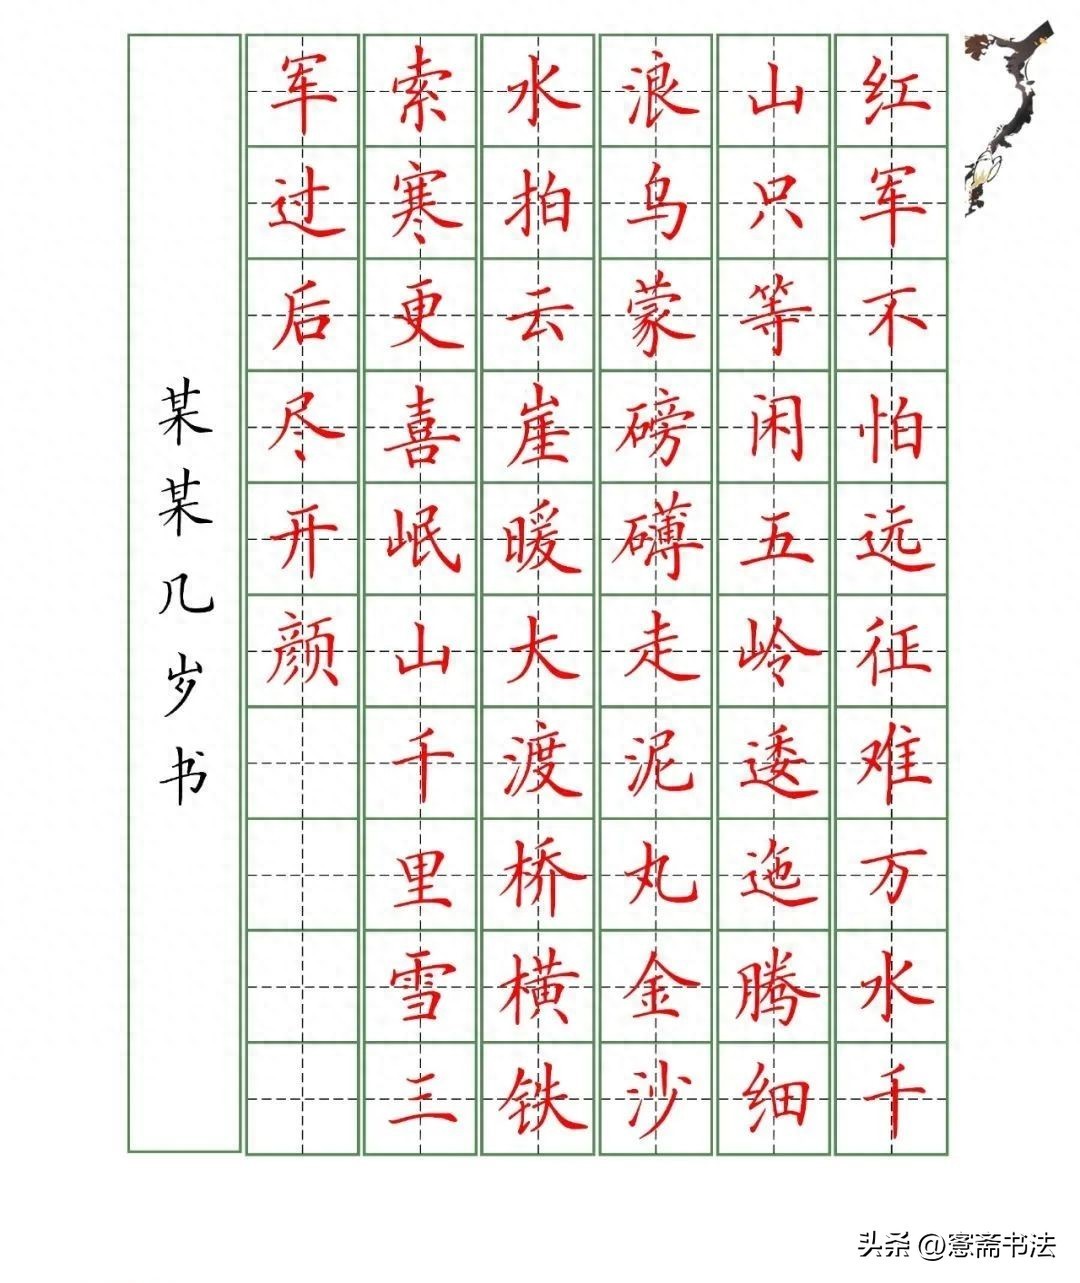 红军不怕远征难万水千
山只等闲五岭逶迤腾细
浪乌蒙磅礴走泥丸金沙
水拍云崖暖大渡桥横铁
索寒更喜岷山千里雪三
军过后尽开颜
某某几岁书
头条 @窓斋书法